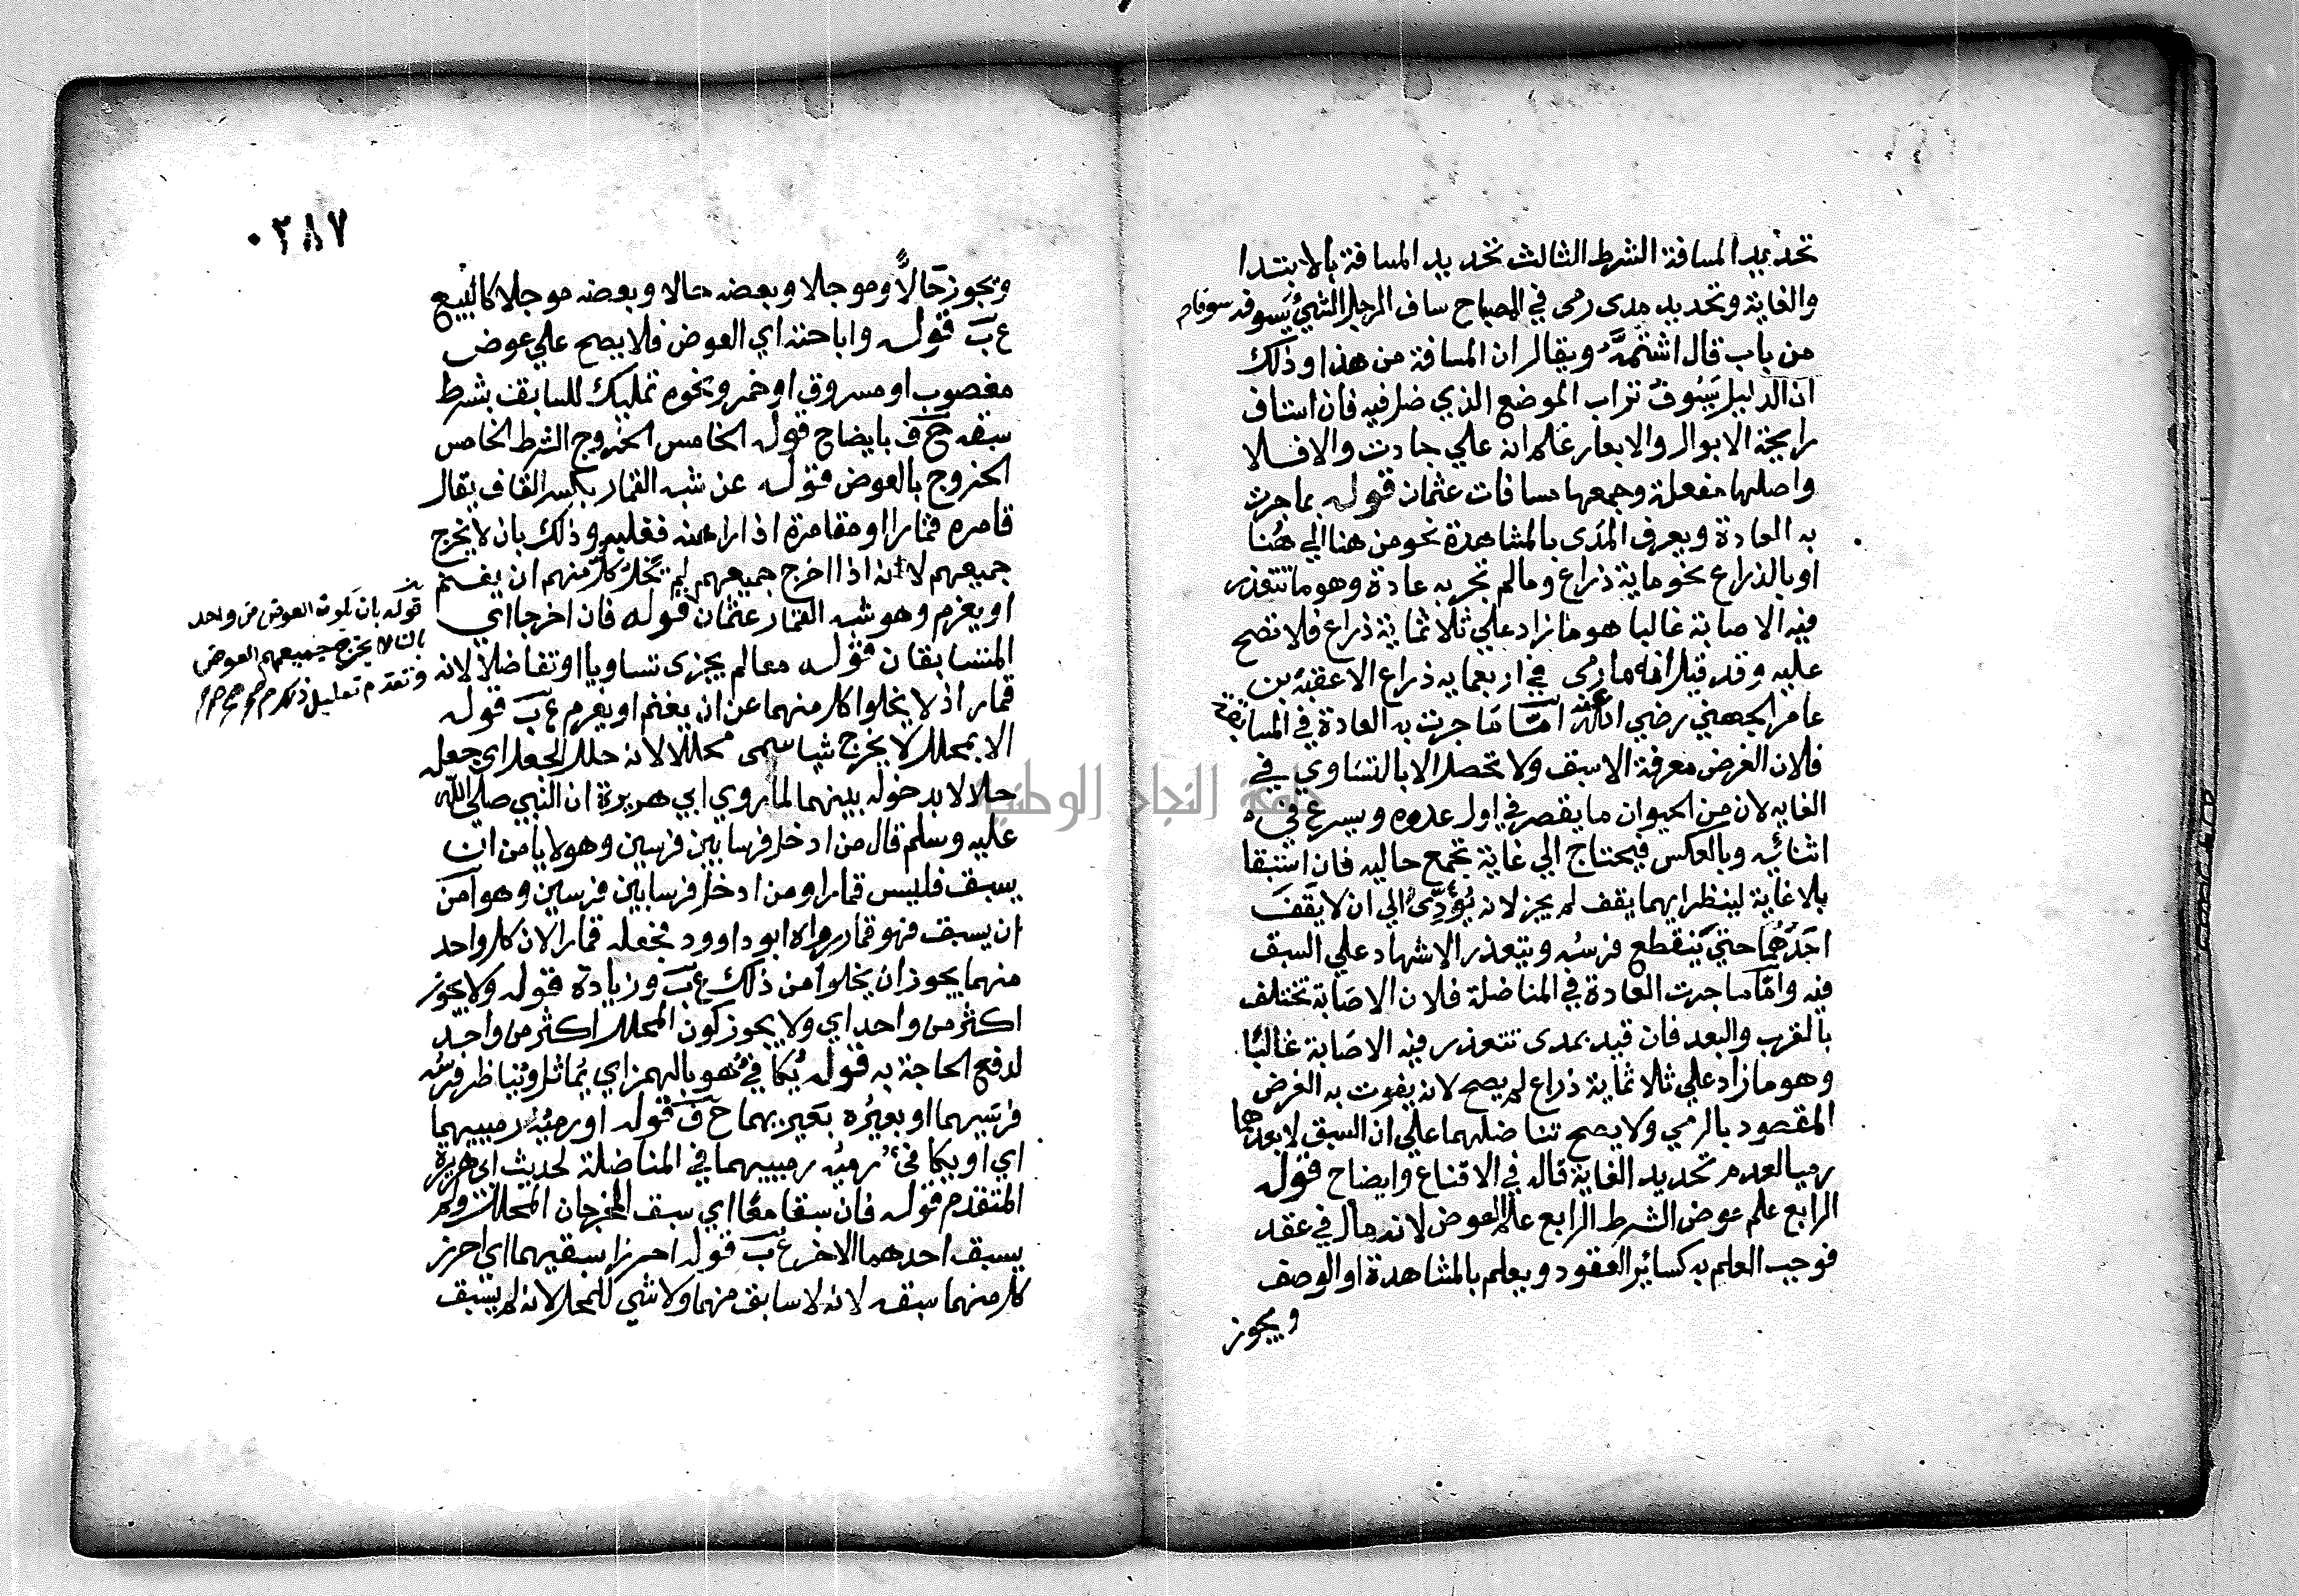 تحديد المسافة الشرط الثالث تحديد المسافة بالابتدا
والغاية وتحديد مدى رمى في المصباح ساف الرجل الشيء يسوفه سوفا
من باب قال اشتمه ويقال ان المسافة من هذا وذلك
ان الدليل يسوف تراب الموضع الذي ضل فيه فان استاف
رايحة الابوال والابعار علم انه علي جادت والا فلا
واصلها مفعلة وجمعها مسافات عثمان قوله بما جرت
به العادة ويعرف المدى بالمشاهدة نحو من هنا الي هنا
او بالذراع نحو ماية ذراع وما لم تجر به عادة وهو ما تتعذر
فيه الاصابة غالبا هو ما زاد علي ثلاثماية ذراع فلا تصح
عليه وقد قيل انه ما رمى في اربعمايه ذراع الا عقبة بن
عامر الجهني رضي الله عنه اما ما جرت به العادة في المسابقة
فلان الغرض معرفة الاسبق ولا تحصل الا بالتساوي في
الغايه لان من الحيوان ما يقصر في اول عدوه ويسرع في
اثنائه وبالعكس فيحتاج الي غاية تجمع حاليه فان استبقا
بلا غاية لينظر ايهما يقف لم يجز لانه يؤدي الي ان لا يقف
احدهما حتي ينقطع فرسه ويتعذر الاشهاد علي السبق
فيه واما ما جرت العادة في المناضلة فلان الاصابة تختلف
بالقرب والبعد فان قيد بمدى تتعذر فيه الاصابة غالبا
وهو ما زاد علي ثلاثماية ذراع لم يصح لانه يفوت به الغرض
المقصود بالرمي ولا يصح تناضلهما علي ان السبق لابعدهما
رميا لعدم تحديد الغاية قال في الاقناع وايضاح قوله
الرابع علم عوض الشرط الرابع علم العوض لانه مال في عقد
فوجب العلم به كسائر العقود ويعلم بالمشاهدة او الوصف
ويجوز
٠٢٨٧
ويجوز حالا وموجلا وبعضه حالا وبعضه موجلا كالبيع
ع ب قوله واباحته اي العوض فلا يصح علي عوض
مغصوب او مسروق او خمر ونحوه تمليك للسابق بشرط
سبقه ح ف بايضاح قوله الخامس الخروج الشرط الخامس
الخروج بالعوض قوله عن شبه القمار بكسر القاف يقال
قامره قمارا او مقامرة اذا راهنه فغلبه وذلك بان لا يخرج
جميعهم لانه اذا اخرج جميعهم لم يخل كل منهم ان يغنم
او يغرم وهو شبه القمار عثمان قوله فان اخرجا اي
المتسابقان قوله معا لم يجزى تساويا او تفاضلا لانه
قمار اذ لا يخلوا كل منهما عن ان يغنم او يغرم ع ب قوله
الا بمحلل لا يخرج شيا سمى محللا لانه حلل الجعل اي جعله
حلالا بدخوله بينهما لما روي ابي هريرة ان النبي صلى الله
عليه وسلم قال من ادخل فرسا بين فرسين وهو لا يامن ان
يسبق فليس قمارا ومن ادخل فرسا بين فرسين وهو امن
ان يسبق فهو قمار رواه ابو داوود فجعله قمارا لان كل واحد
منهما يجوز ان يخلوا من ذلك ع ب وزيادة قوله ولا يجوز
اكثر من واحد اي ولا يجوز كون المحلل اكثر من واحد
لدفع الحاجة به قوله يكافي هو بالهمز اي يماثل ويناظر فرسه
فرسيهما او بعيره بعيريهما ح ف قوله او رميه رمييهما
اي او يكافئ رميه رمييهما في المناضلة لحديث ابي هريرة
المتقدم قوله فان سبقا معا اي سبق المخرجان المحلل ولم
يسبق احدهما الاخر ع ب قوله احرزا سبقيهما اي احرز
كل منهما سبقه لانه لا سابق منهما ولا شي للمحلل لانه لم يسبق
قوله بان يكون العوض من واحد
بان لا يخرج جميعهم العوض
وتقدم تعليل ذلك
جامعة النجاح الوطنية